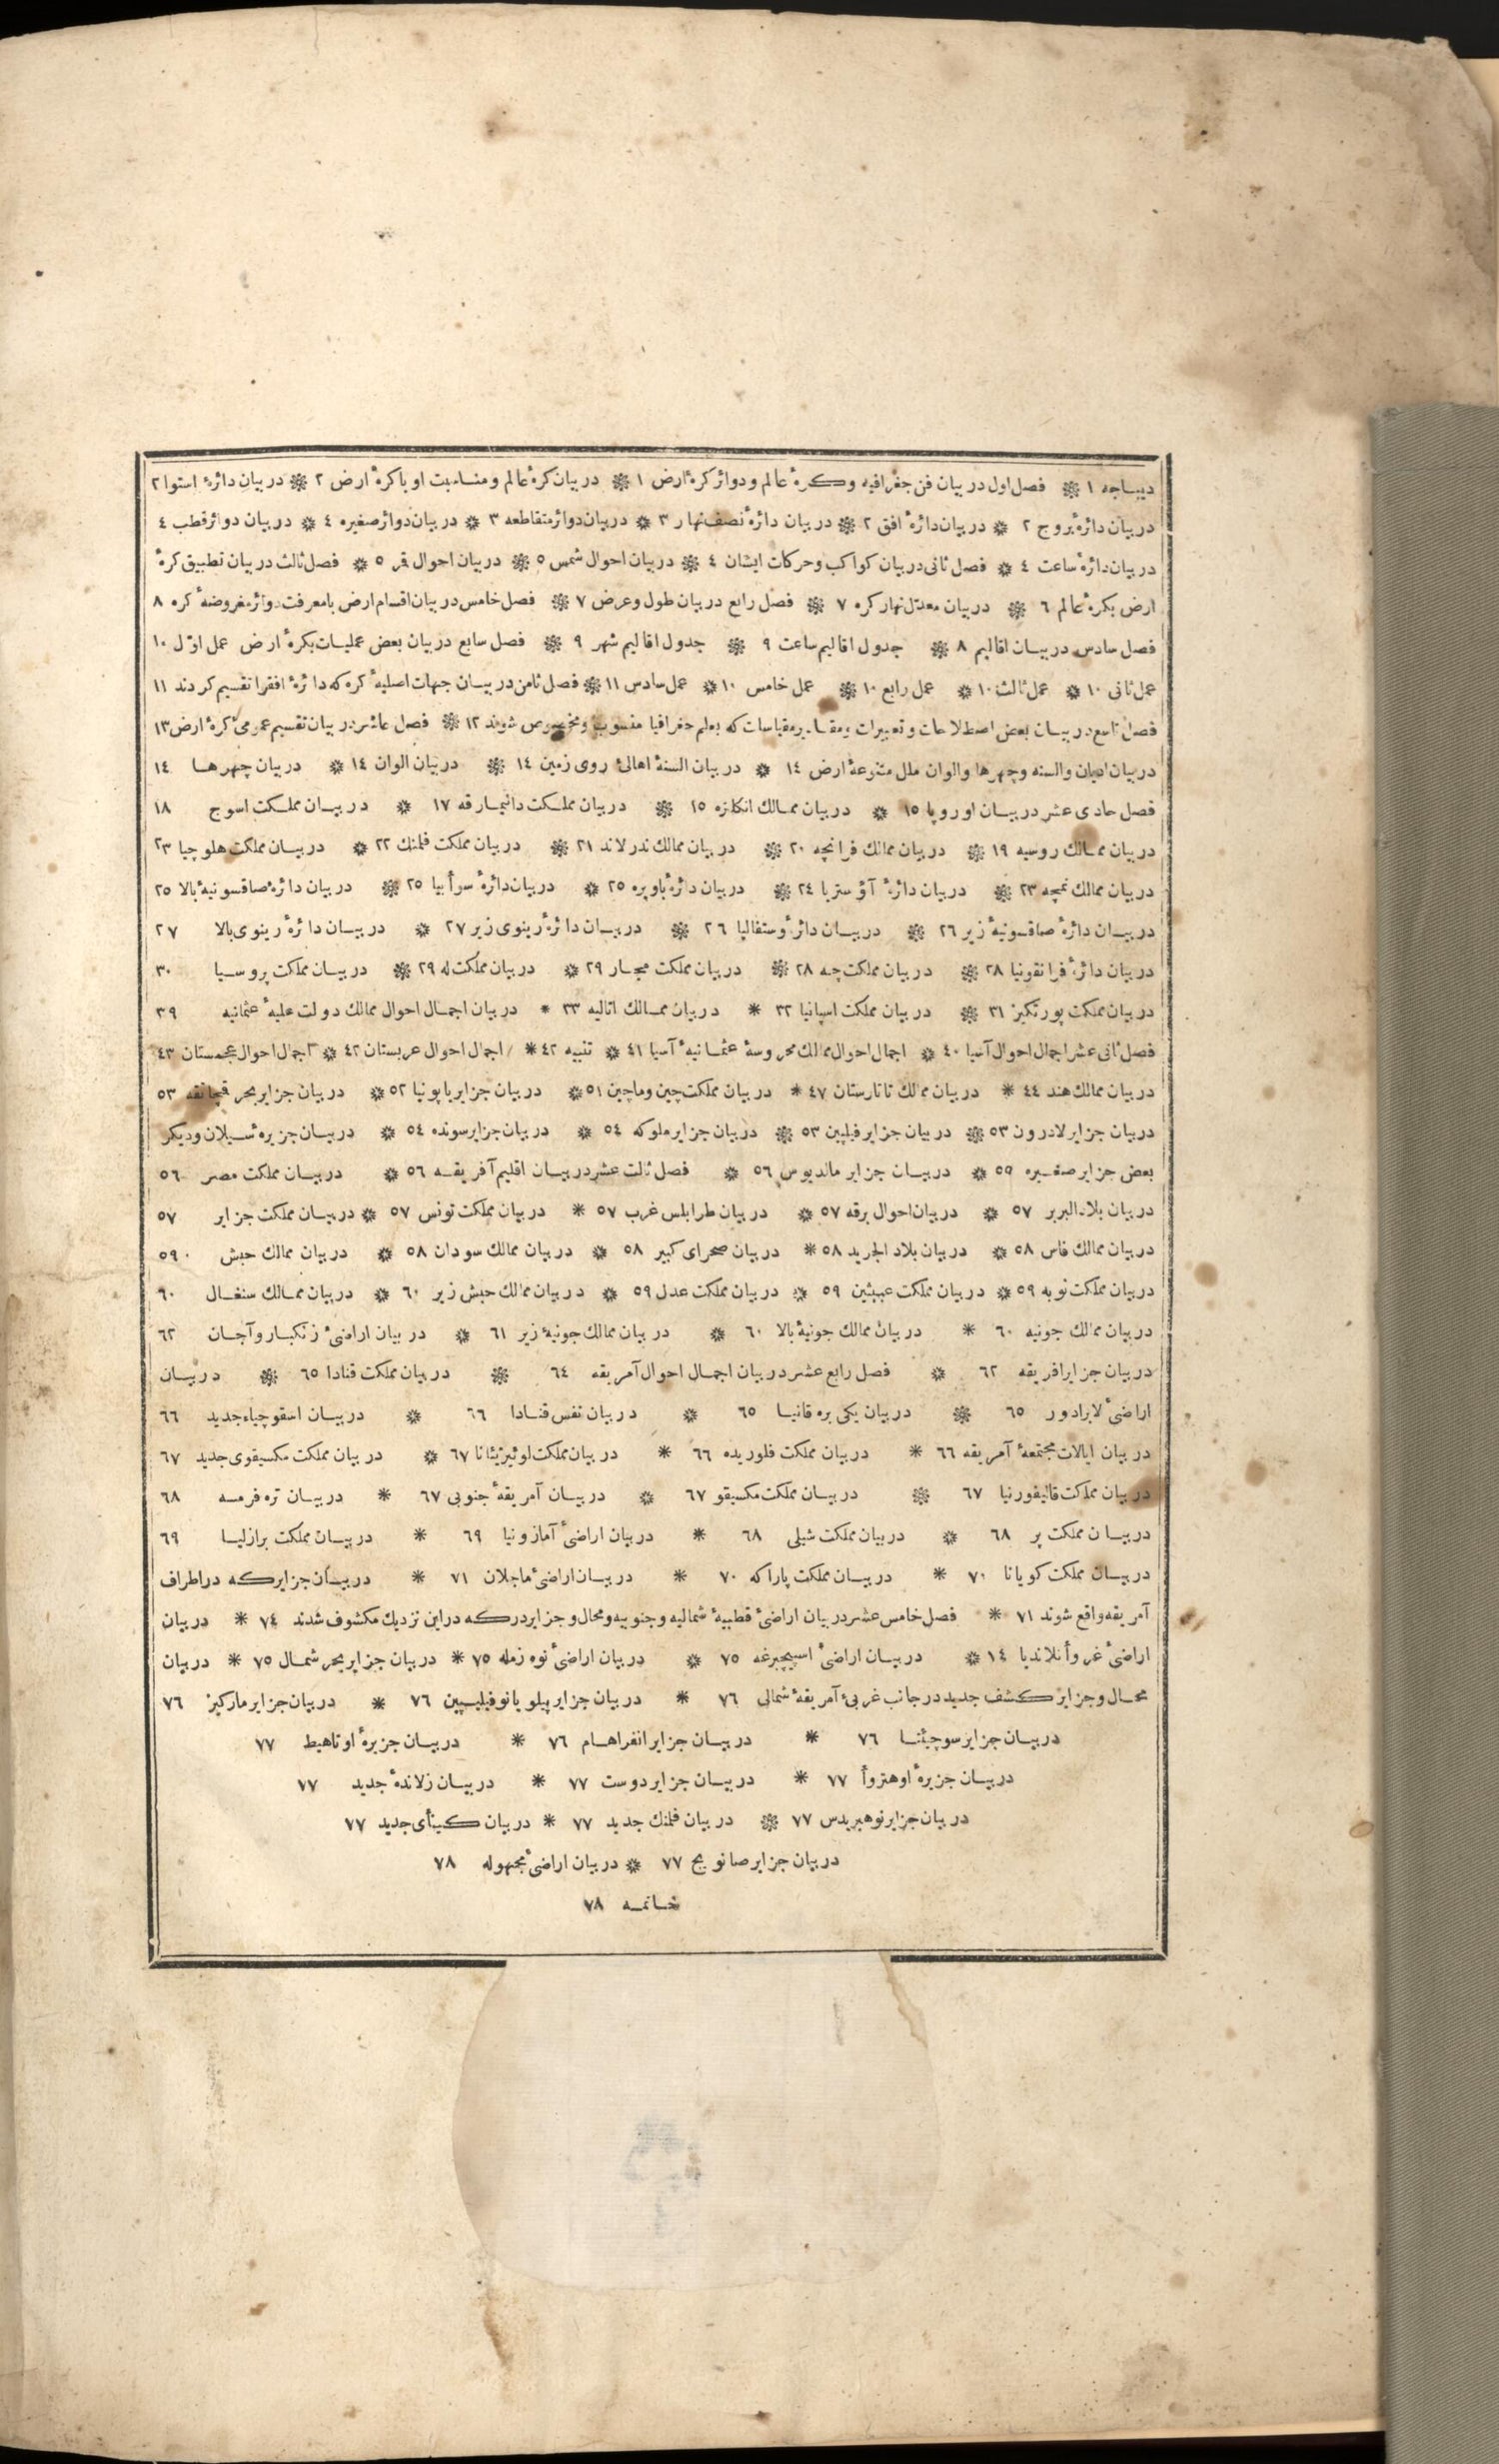 دیباجه ۱ ❋ فصل اول در بیان فن جغرافیه وکرهٔ عالم و دوائر کرهٔ ارض ۱ ❋ در بیان کرهٔ عالم ومناسبت او با کرهٔ ارض ۲ ❋ در بیان دائرهٔ استوا ۲
در بیان دائرهٔ بروج ۲ ❋ در بیان دائرهٔ افق ۲ ❋ در بیان دائرهٔ نصف نهار ۳ ❋ در بیان دوائر متقاطعه ۳ ❋ در بیان دوائر صغیره ٤ ❋ در بیان دوائر قطب ٤
در بیان دائرهٔ ساعت ٤ ❋ فصل ثانی در بیان کواکب وحرکات ایشان ٤ ❋ در بیان احوال شمس ٥ ❋ در بیان احوال قمر ٥ ❋ فصل ثالث در بیان تطبیق کرهٔ
ارض بکرهٔ عالم ٦ ❋ در بیان معدل نهار کره ۷ ❋ فصل رابع در بیان طول وعرض ۷ ❋ فصل خامس در بیان اقسام ارض بامعرفت دوائر مفروضهٔ کره ۸
فصل سادس در بیان اقالیم ۸ ❋ جدول اقالیم ساعت ۹ ❋ جدول اقالیم شهر ۹ ❋ فصل سابع در بیان بعض عملیات بکرهٔ ارض عمل اول ۱۰
عمل ثانی ۱۰ ❋ عمل ثالث ۱۰ ❋ عمل رابع ۱۰ ❋ عمل خامس ۱۰ ❋ عمل سادس ۱۱ ❋ فصل ثامن در بیان جهات اصلیهٔ کره که دائرهٔ افقرا تقسیم کردند ۱۱
فصل تاسع در بیان بعض اصطلاحات و تعبیرات ومقادیر مقیاسات که بعلم جغرافیا منسوب ومخصوص شوند ۱۲ ❋ فصل عاشر در بیان تقسیم عمومیٔ کرهٔ ارض ۱۳
در بیان ادیان والسنه وچهرها والوان ملل متنوعهٔ ارض ۱٤ ❋ در بیان السنهٔ اهالیٔ روی زمین ۱٤ ❋ در بیان الوان ۱٤ ❋ در بیان چهرها ۱٤
فصل حادی عشر در بیان اوروپا ۱٥ ❋ در بیان ممالك انکلتره ۱٥ ❋ در بیان مملکت دانیمارقه ۱۷ ❋ در بیان مملکت اسوج ۱۸
در بیان ممالك روسیه ۱۹ ❋ در بیان ممالك فرانچه ۲۰ ❋ در بیان ممالك ندرلاند ۲۱ ❋ در بیان مملکت فلمنك ۲۲ ❋ در بیان مملکت هلوچیا ۲۳
در بیان ممالك نمچه ۲۳ ❋ در بیان دائرهٔ آؤستریا ۲٤ ❋ در بیان دائرهٔ باویره ۲٥ ❋ در بیان دائرهٔ سوأبیا ۲٥ ❋ در بیان دائرهٔ صاقسونیهٔ بالا ۲٥
در بیان دائرهٔ صاقسونیهٔ زیر ۲٦ ❋ در بیان دائرهٔ وستفالیا ۲٦ ❋ در بیان دائرهٔ رینوی زیر ۲۷ ❋ در بیان دائرهٔ رینوی بالا ۲۷
در بیان دائرهٔ فرانقونیا ۲۸ ❋ در بیان مملکت چه ۲۸ ❋ در بیان مملکت مجار ۲۹ ❋ در بیان مملکت له ۲۹ ❋ در بیان مملکت پروسیا ۳۰
در بیان مملکت پورتکیز ۳۱ ❋ در بیان مملکت اسپانیا ۳۲ * در بیان ممالك اتالیه ۳۳ * در بیان اجمال احوال ممالك دولت علیهٔ عثمانیه ۳۹
فصل ثانی عشر اجمال احوال آسیا ٤۰ ❋ اجمال احوال ممالك محروسهٔ عثمانیهٔ آسیا ٤۱ ❋ تنبیه ٤۲ * اجمال احوال عربستان ٤۲ ❋ اجمال احوال عجمستان ٤۳
در بیان ممالك هند ٤٤ * در بیان ممالك تاتارستان ٤۷ * در بیان مملکت چین وماچین ٥۱ ❋ در بیان جزایر یاپونیا ٥۲ ❋ در بیان جزایر بحر قمچاتقه ٥۳
در بیان جزایر لادرون ٥۳ ❋ در بیان جزایر فیلیپین ٥۳ ❋ در بیان جزایر ملوکه ٥٤ ❋ در بیان جزایر سونده ٥٤ ❋ در بیان جزیرهٔ سیلان ودیکر
بعض جزایر صغیره ٥٥ ❋ در بیان جزایر مالدیوس ٥٦ ❋ فصل ثالث عشر در بیان اقلیم آفریقه ٥٦ ❋ در بیان مملکت مصر ٥٦
در بیان بلاد البربر ٥۷ ❋ در بیان احوال برقه ٥۷ ❋ در بیان طرابلس غرب ٥۷ * در بیان مملکت تونس ٥۷ ❋ در بیان مملکت جزایر ٥۷
در بیان ممالك فاس ٥۸ ❋ در بیان بلاد الجرید ٥۸ * در بیان صحرای کبیر ٥۸ ❋ در بیان ممالك سودان ٥۸ ❋ در بیان ممالك حبش ٥۹
در بیان مملکت نوبه ٥۹ ❋ در بیان مملکت عبیثین ٥۹ ❋ در بیان مملکت عدل ٥۹ ❋ در بیان ممالك حبش زیر ٦۰ ❋ در بیان ممالك سنغال ٦۰
در بیان ممالك جونیه ٦۰ * در بیان ممالك جونیهٔ بالا ٦۰ ❋ در بیان ممالك جونیهٔ زیر ٦۱ ❋ در بیان اراضیٔ زنکبار وآجان ٦۲
در بیان جزایر افریقه ٦۲ ❋ فصل رابع عشر در بیان اجمال احوال آمریقه ٦٤ ❋ در بیان مملکت قنادا ٦٥ ❋ در بیان
اراضیٔ لابرادور ٦٥ ❋ در بیان یکی بره قانیا ٦٥ ❋ در بیان نفس قنادا ٦٦ ❋ در بیان اسقوچیاء جدید ٦٦
در بیان ایالات مجتمعهٔ آمریقه ٦٦ * در بیان مملکت فلوریده ٦٦ * در بیان مملکت لوئیزیئانا ٦۷ ❋ در بیان مملکت مکسیقوی جدید ٦۷
در بیان مملکت قالیفورنیا ٦۷ ❋ در بیان مملکت مکسیقو ٦۷ ❋ در بیان آمریقهٔ جنوبی ٦۷ * در بیان تره فرمسه ٦۸
در بیان مملکت پر ٦۸ ❋ در بیان مملکت شیلی ٦۸ * در بیان اراضیٔ آمازونیا ٦۹ * در بیان مملکت برازلیا ٦۹
در بیان مملکت کویانا ۷۰ * در بیان مملکت پاراکه ۷۰ * در بیان اراضیٔ ماجلان ۷۱ * در بیان جزایر که در اطراف
آمریقه واقع شوند ۷۱ * فصل خامس عشر در بیان اراضیٔ قطبیهٔ شمالیه وجنوبیه ومحال وجزایر درکه در این نزدیك مکشوف شدند ۷٤ * در بیان
اراضیٔ غروأنلاندیا ۱٤ ❋ در بیان اراضیٔ اسپیچبرغه ۷٥ ❋ در بیان اراضیٔ نوه زمله ۷٥ * در بیان جزایر بحر شمال ۷٥ * در بیان
محال وجزایر کشف جدید در جانب غربیٔ آمریقهٔ شمالی ۷٦ * در بیان جزایر پیلو یا نوفیلیپین ۷٦ * در بیان جزایر مارکیز ۷٦
در بیان جزایر سوچیئتا ۷٦ * در بیان جزایر انفراهام ۷٦ * در بیان جزیرهٔ اوتاهیط ۷۷
در بیان جزیرهٔ اوهتروأ ۷۷ * در بیان جزایر دوست ۷۷ * در بیان زلاندهٔ جدید ۷۷
در بیان جزایر نوهبریدس ۷۷ ❋ در بیان فلمنك جدید ۷۷ * در بیان کینأی جدید ۷۷
در بیان جزایر صانویج ۷۷ ❋ در بیان اراضیٔ مجهوله ۷۸
خاتمه ۷۸